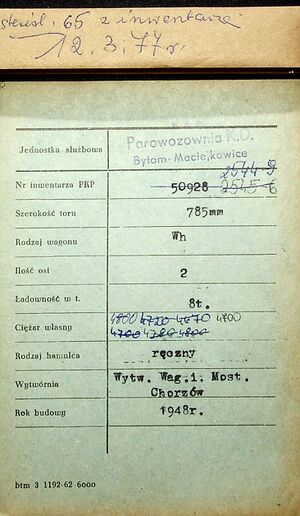 skreśl. 65 z inwentarza
12.3.77r.
Jednostka służbowa
Parowozownia K.D.
Bytom-Maciejkowice
2544-9
Nr inwentarza PKP 50928 2545-6
Szerokość toru 785mm
Rodzaj wagonu Wh
Ilość osi 2
Ładowność w t. 8t.
4800 4720 4670 4700
Ciężar własny 4700 4780 4800
Rodzaj hamulca ręczny
Wytwórnia Wytw. Wag.i. Most.
Chorzów
Rok budowy 1948r.
btm 3 1192-62 6000